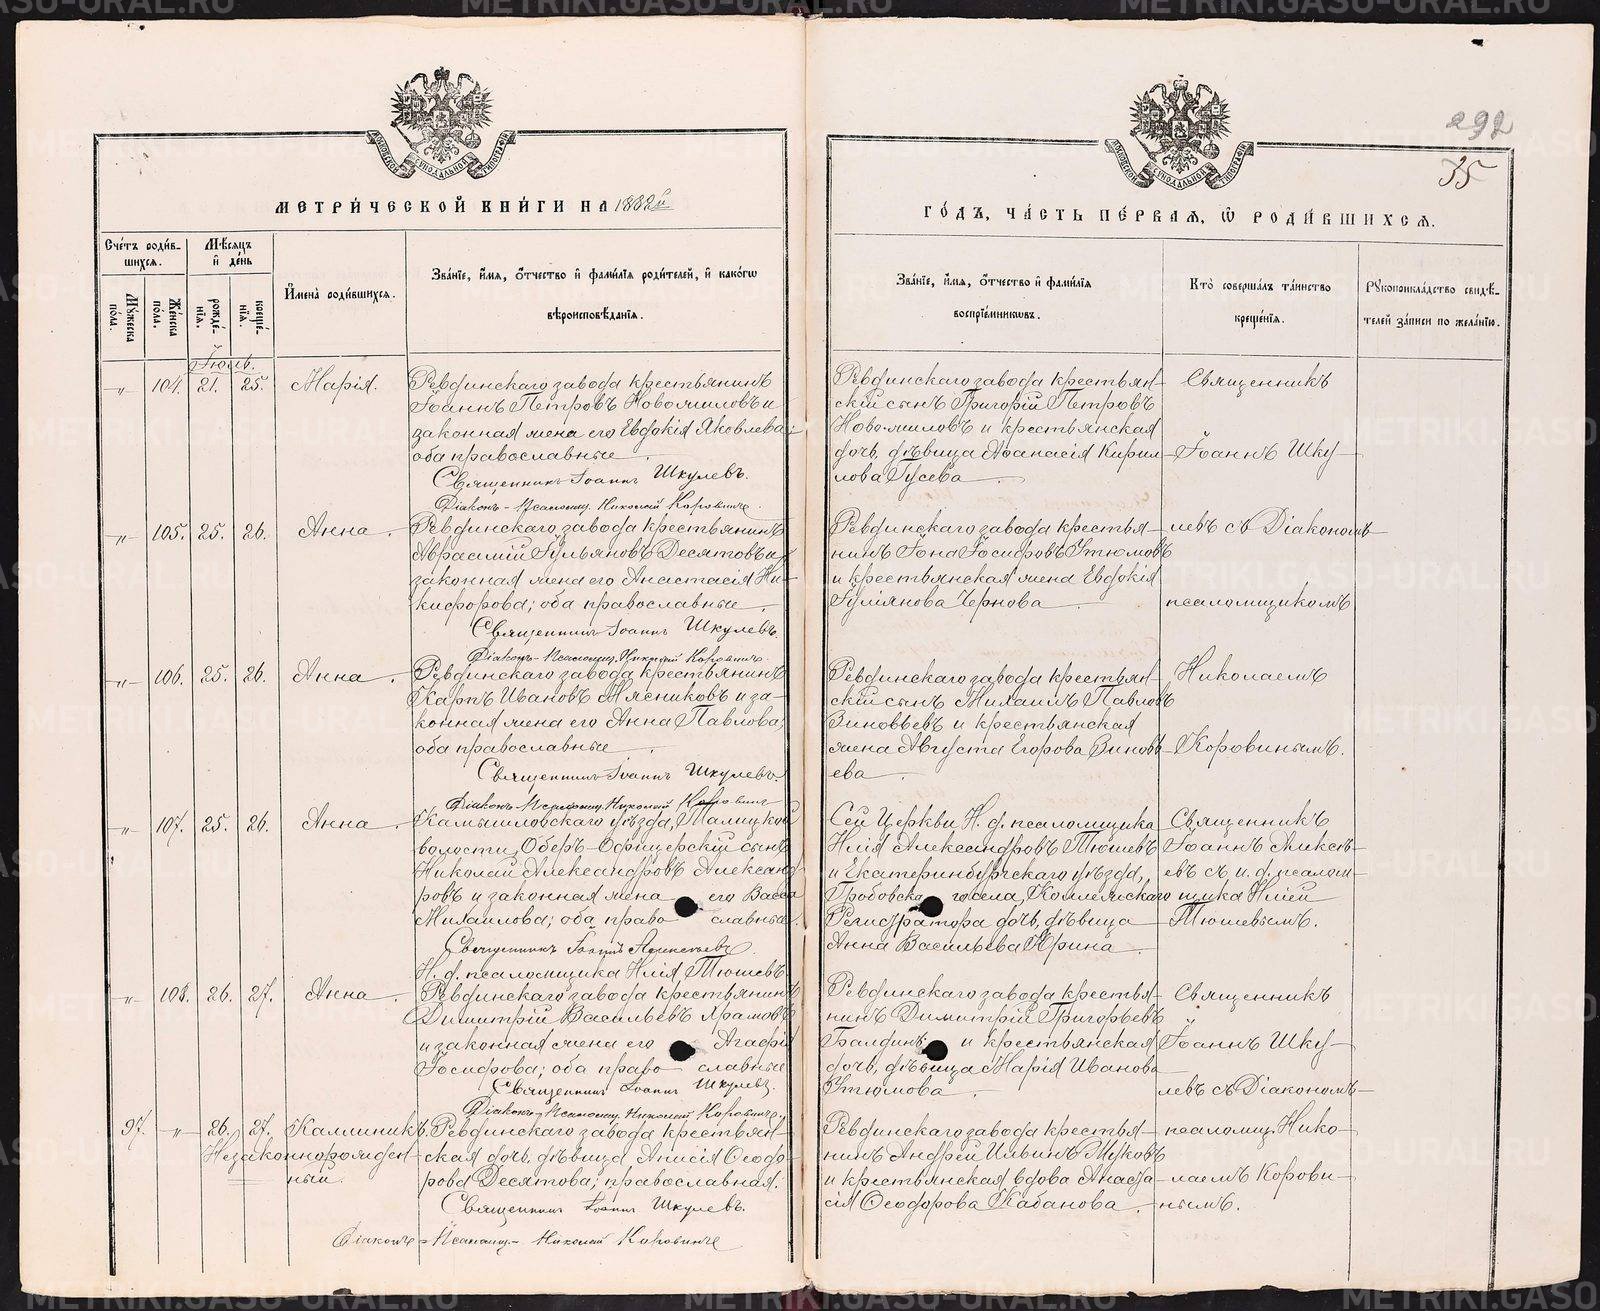 292
35
МЕТРИЧЕСКОЙ КНИГИ НА 1882й
ГОДЪ, ЧАСТЬ ПЕРВАЯ, Ѡ РОДИВШИХСЯ.
Счетъ родив-
шихся.
Мѣсяцъ
и день
Мужеска
пола.
Женска
пола.
рожде-
нїя.
креще-
нїя.
Имена родившихся.
Званїе, имя, отчество и фамилїя родителей, и какогѡ
вѣроисповѣданїя.
Званїе, имя, отчество и фамилїя
воспрїемниковъ.
Кто совершалъ таинство
крещенїя.
Рукоприкладство свидѣ-
телей записи по желанїю.
Іюль.
-„- 104. 21. 25. Марія.
Ревдинскаго завода крестьянинъ
Іоаннъ Петровъ Новожиловъ и
законная жена его Евдокія Яковлева;
оба православные.
Священникъ Іоаннъ Шкулевъ.
Діаконъ-Псаломщ. Николай Коровинъ.
Ревдинскаго завода крестьян-
скій сынъ Григорій Петровъ
Новожиловъ и крестьянская
дочь, дѣвица Аѳанасія Кирил-
лова Гусева.
Священникъ
Іоаннъ Шку-
-„- 105. 25. 26. Анна.
Ревдинскаго завода крестьянинъ
Десятовъ и
законная жена его Анастасія Ни-
кифорова; оба православные.
Священникъ Іоаннъ Шкулевъ.
Діаконъ-Псаломщ. Николай Коровинъ.
Ревдинскаго завода крестья-
нинъ Іона Іосифовъ Утюмовъ
и крестьянская жена Евдокія
Чернова.
левъ съ Діакономъ-
псаломщикомъ
-„- 106. 25. 26. Анна.
Ревдинскаго завода крестьянинъ
Карпъ Ивановъ Мясниковъ и за-
конная жена его Анна Павлова;
оба православные.
Священникъ Іоаннъ Шкулевъ.
Діаконъ-Псаломщ. Николай Коровинъ
Ревдинскаго завода крестьян-
скій сынъ Михаилъ Павловъ
Зиновьевъ и крестьянская
жена Августа Егорова Зиновь-
ева.
Николаемъ
Коровинымъ.
-„- 107. 25. 26. Анна.
Камышловскаго уѣзда, Талицкой
волости, Оберъ-Офицерскій сынъ
Николай Александровъ Александ-
ровъ и законная жена его Васса
Михаилова; оба православные.
Священникъ Іоаннъ Алексѣевъ.
И. д. псаломщика Илія Тюшевъ.
Сей Церкви И. д. псаломщика
Илія Александровъ Тюшевъ
и Екатеринбургскаго уѣзда,
Гробовскаго села, Коллежскаго
Регистратора дочь, дѣвица
Анна Васильева Юрина.
Священникъ
Іоаннъ Алексѣ-
евъ съ и. д. псалом-
щика Иліей
Тюшевымъ.
-„- 108. 26. 27. Анна.
Ревдинскаго завода крестьянинъ
Димитрій Васильевъ Храмовъ
и законная жена его Агафія
Іосифова; оба православные
Священникъ Іоаннъ Шкулевъ.
Діаконъ-Псаломщ. Николай Коровинъ.
Ревдинскаго завода крестья-
нинъ Димитрій Григорьевъ
Балдинъ и крестьянская
дочь, дѣвица Марія Иванова
Утюмова.
Священникъ
Іоаннъ Шку-
левъ съ Діакономъ-
97. -„- 26. 27. Каллиникъ.
Незаконнорожден-
ный.
Ревдинскаго завода крестьян-
ская дочь, дѣвица Анисія Ѳеодо-
рова Десятова; православная.
Священникъ Іоаннъ Шкулевъ.
Діаконъ-Псаломщ.- Николай Коровинъ
Ревдинскаго завода крестья-
нинъ Андрей Ильинъ Жуковъ
и крестьянская вдова Анаста-
сія Ѳеодорова Кабанова.
псаломщ. Нико-
лаемъ Корови-
нымъ.